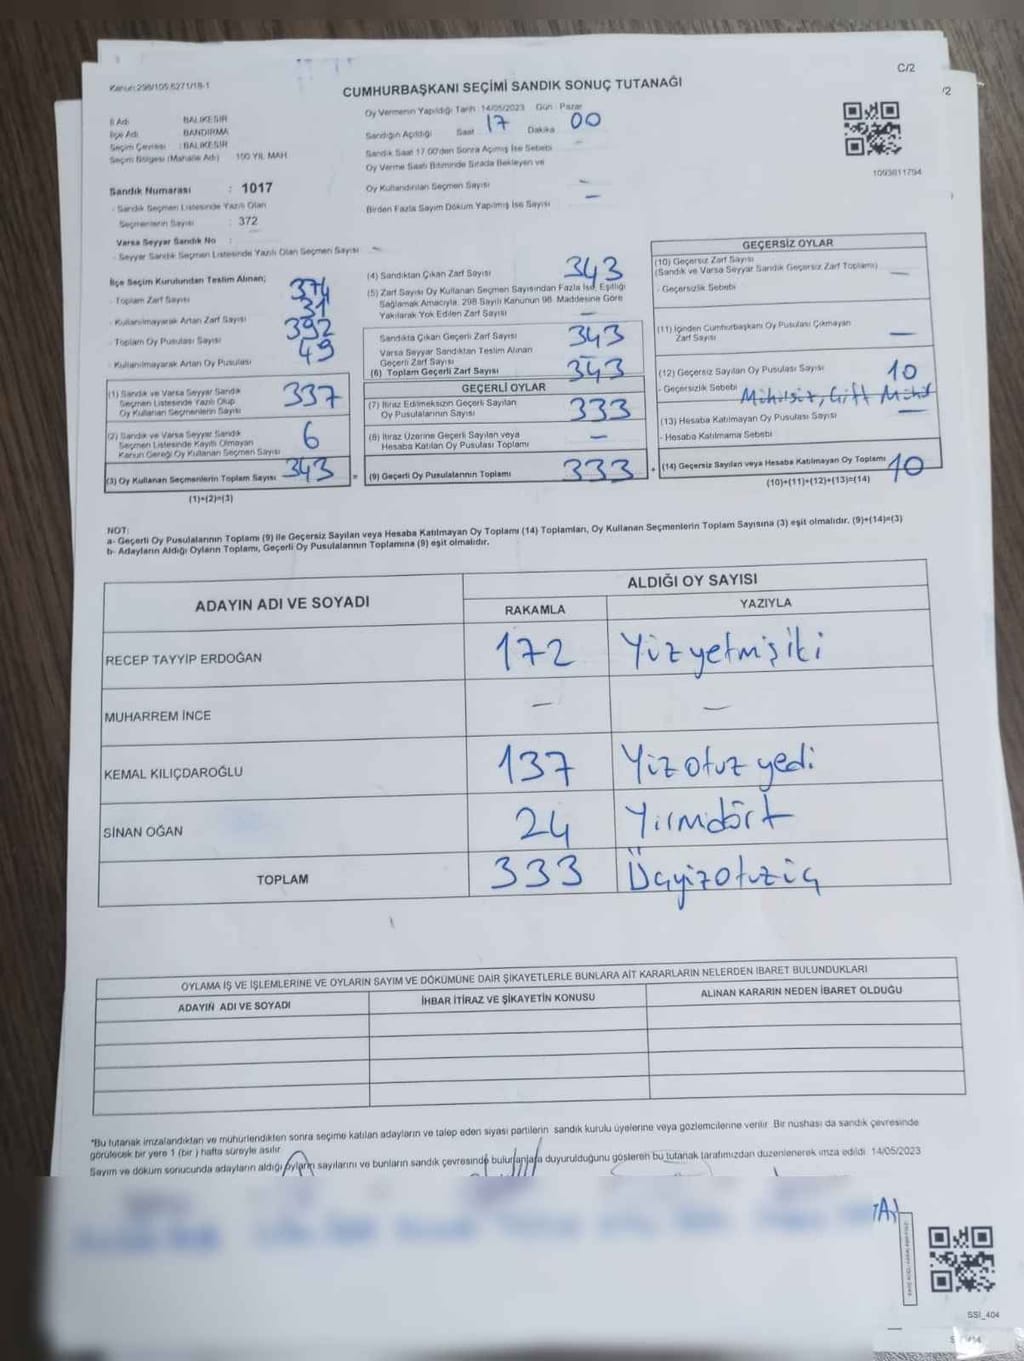 C/2
/2
Kanun:298/105 6271/18-1
CUMHURBAŞKANI SEÇİMİ SANDIK SONUÇ TUTANAĞI
İl Adı : BALIKESİR
İlçe Adı : BANDIRMA
Seçim Çevresi : BALIKESİR
Seçim Bölgesi (Mahalle Adı) : 100 YIL MAH.
Oy Vermenin Yapıldığı Tarih :14/05/2023 Gün : Pazar
Sandığın Açıldığı Saat 17 Dakika 00
Sandık Saat 17.00'den Sonra Açımış İse Sebebi –
Oy Verme Saati Bitiminde Sırada Bekleyen ve
Oy Kullandırılan Seçmen Sayısı –
Birden Fazla Sayım Döküm Yapılmış İse Sayısı –
1093811794
Sandık Numarası : 1017
- Sandık Seçmen Listesinde Yazılı Olan
Seçmenlerin Sayısı : 372
Varsa Seyyar Sandık No :
- Seyyar Sandık Seçmen Listesinde Yazılı Olan Seçmen Sayısı –
İlçe Seçim Kurulundan Teslim Alınan;
- Toplam Zarf Sayısı 374
- Kullanılmayarak Artan Zarf Sayısı 31
- Toplam Oy Pusulası Sayısı 392
- Kullanılmayarak Artan Oy Pusulası 49
(1) Sandık ve Varsa Seyyar Sandık
Seçmen Listesinde Yazılı Olup
Oy Kullanan Seçmenlerin Sayısı 337
(2) Sandık ve Varsa Seyyar Sandık
Seçmen Listesinde Kayıtlı Olmayan
Kanun Gereği Oy Kullanan Seçmen Sayısı 6
(3) Oy Kullanan Seçmenlerin Toplam Sayısı 343
(1)+(2)=(3)
=
(4) Sandıktan Çıkan Zarf Sayısı 343
(5) Zarf Sayısı Oy Kullanan Seçmen Sayısından Fazla İse, Eşitliği
Sağlamak Amacıyla, 298 Sayılı Kanunun 98. Maddesine Göre
Yakılarak Yok Edilen Zarf Sayısı –
Sandıkta Çıkan Geçerli Zarf Sayısı 343
Varsa Seyyar Sandıktan Teslim Alınan
Geçerli Zarf Sayısı
(6) Toplam Geçerli Zarf Sayısı 343
GEÇERLİ OYLAR
(7) İtiraz Edilmeksizin Geçerli Sayılan
Oy Pusulasının Sayısı 333
(8) İtiraz Üzerine Geçerli Sayılan veya
Hesaba Katılan Oy Pusulası Toplamı –
(9) Geçerli Oy Pusulalarının Toplamı 333
+
GEÇERSİZ OYLAR
(10) Geçersiz Zarf Sayısı
(Sandık ve Varsa Seyyar Sandık Geçersiz Zarf Toplamı) –
- Geçersizlik Sebebi
(11) İçinden Cumhurbaşkanı Oy Pusulası Çıkmayan
Zarf Sayısı –
(12) Geçersiz Sayılan Oy Pusulası Sayısı 10
- Geçersizlik Sebebi Mühürsüz, Çift Mühür
(13) Hesaba Katılmayan Oy Pusulası Sayısı –
- Hesaba Katılmama Sebebi
(14) Geçersiz Sayılan veya Hesaba Katılmayan Oy Toplamı 10
(10)+(11)+(12)+(13)=(14)
NOT:
a- Geçerli Oy Pusulalarının Toplamı (9) ile Geçersiz Sayılan veya Hesaba Katılmayan Oy Toplamı (14) Toplamları, Oy Kullanan Seçmenlerin Toplam Sayısına (3) eşit olmalıdır. (9)+(14)=(3)
b- Adayların Aldığı Oyların Toplamı, Geçerli Oy Pusulalarının Toplamına (9) eşit olmalıdır.
ADAYIN ADI VE SOYADI
ALDIĞI OY SAYISI
RAKAMLA YAZIYLA
RECEP TAYYİP ERDOĞAN 172 Yüzyetmişiki
MUHARREM İNCE – –
KEMAL KILIÇDAROĞLU 137 Yüzotuzyedi
SİNAN OĞAN 24 Yirmdört
TOPLAM 333 Üçyüzotuzüç
OYLAMA İŞ VE İŞLEMLERİNE VE OYLARIN SAYIM VE DÖKÜMÜNE DAİR ŞİKAYETLERLE BUNLARA AİT KARARLARIN NELERDEN İBARET BULUNDUKLARI
ADAYIN ADI VE SOYADI İHBAR İTİRAZ VE ŞİKAYETİN KONUSU ALINAN KARARIN NEDEN İBARET OLDUĞU
*Bu tutanak imzalandıktan ve mühürlendikten sonra seçime katılan adayların ve talep eden siyasi partilerin sandık kurulu üyelerine veya gözlemcilerine verilir. Bir nüshası da sandık çevresinde
görülecek bir yere 1 (bir ) hafta süreyle asılır.
Sayım ve döküm sonucunda adayların aldığı oyların sayılarını ve bunların sandık çevresinde bulunanlara duyurulduğunu gösteren bu tutanak tarafımızdan düzenlenerek imza edildi. 14/05/2023
SSI_404